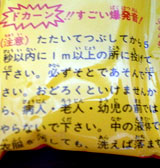 ドカーン!!すごい爆発音!
(注意) たたいてつぶしてから5
秒以内に1m以上の所に投げて
下さい。必ずそとであそんで
さい。おどろくといけません
、病人・老人・幼児の前では
やらないで下さい。中の液体で
衣服
洗えば落ちま